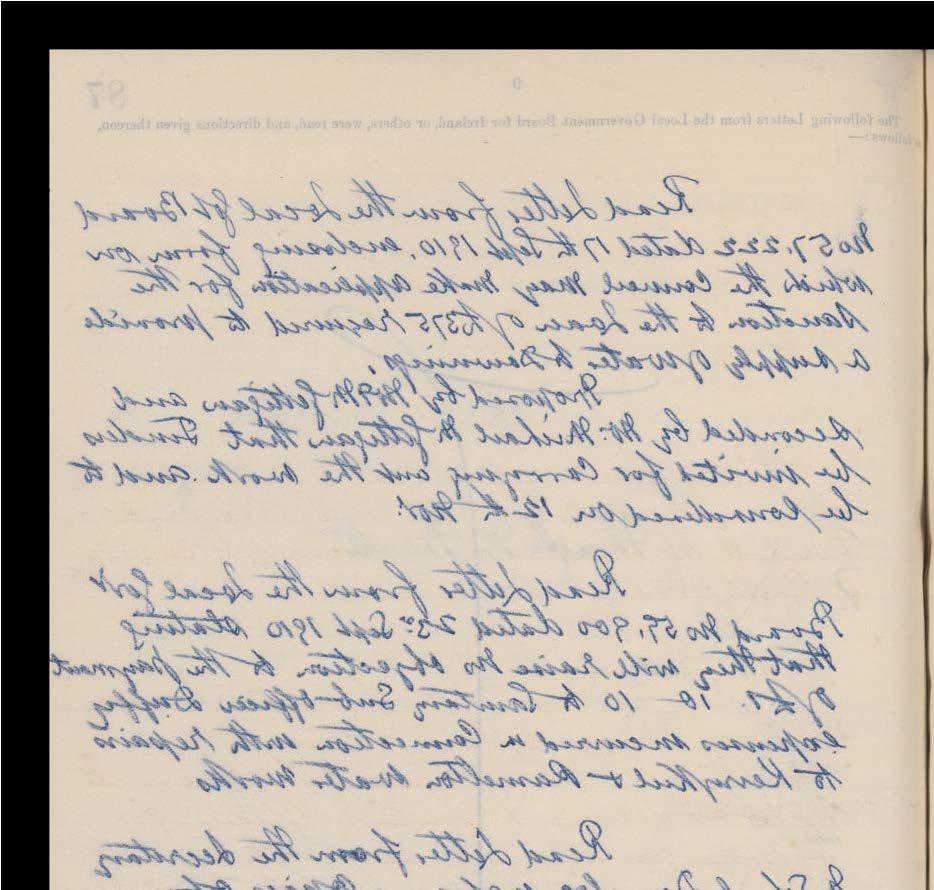 9
87
The following Letters from the Local Government Board for Ireland, or others, were read, and directions given thereon,
follows:—
Read Letter from the Local Govt Board
No 57,222 dated 17th Sept 1910, enclosing form on
which the Council may make application for the
sanction to the Loan of £375 required to provide
a supply of water to Downings,
Proposed by Mr McFettigan and
seconded by Mr Michael McFettigan that Tenders
be invited for carrying out the work and to
be considered on 12th Nov.
Read Letter from the Local Govt
Board No 57,900 dated 23rd Sept 1910 stating
that they will raise no objection to the payment
of £7. 10 10 to Sanitary Sub-Officer Duffy
expenses incurred in Connection with repairs
to Kerrykeel & Ramelton water works
Read Letter from the Secretary